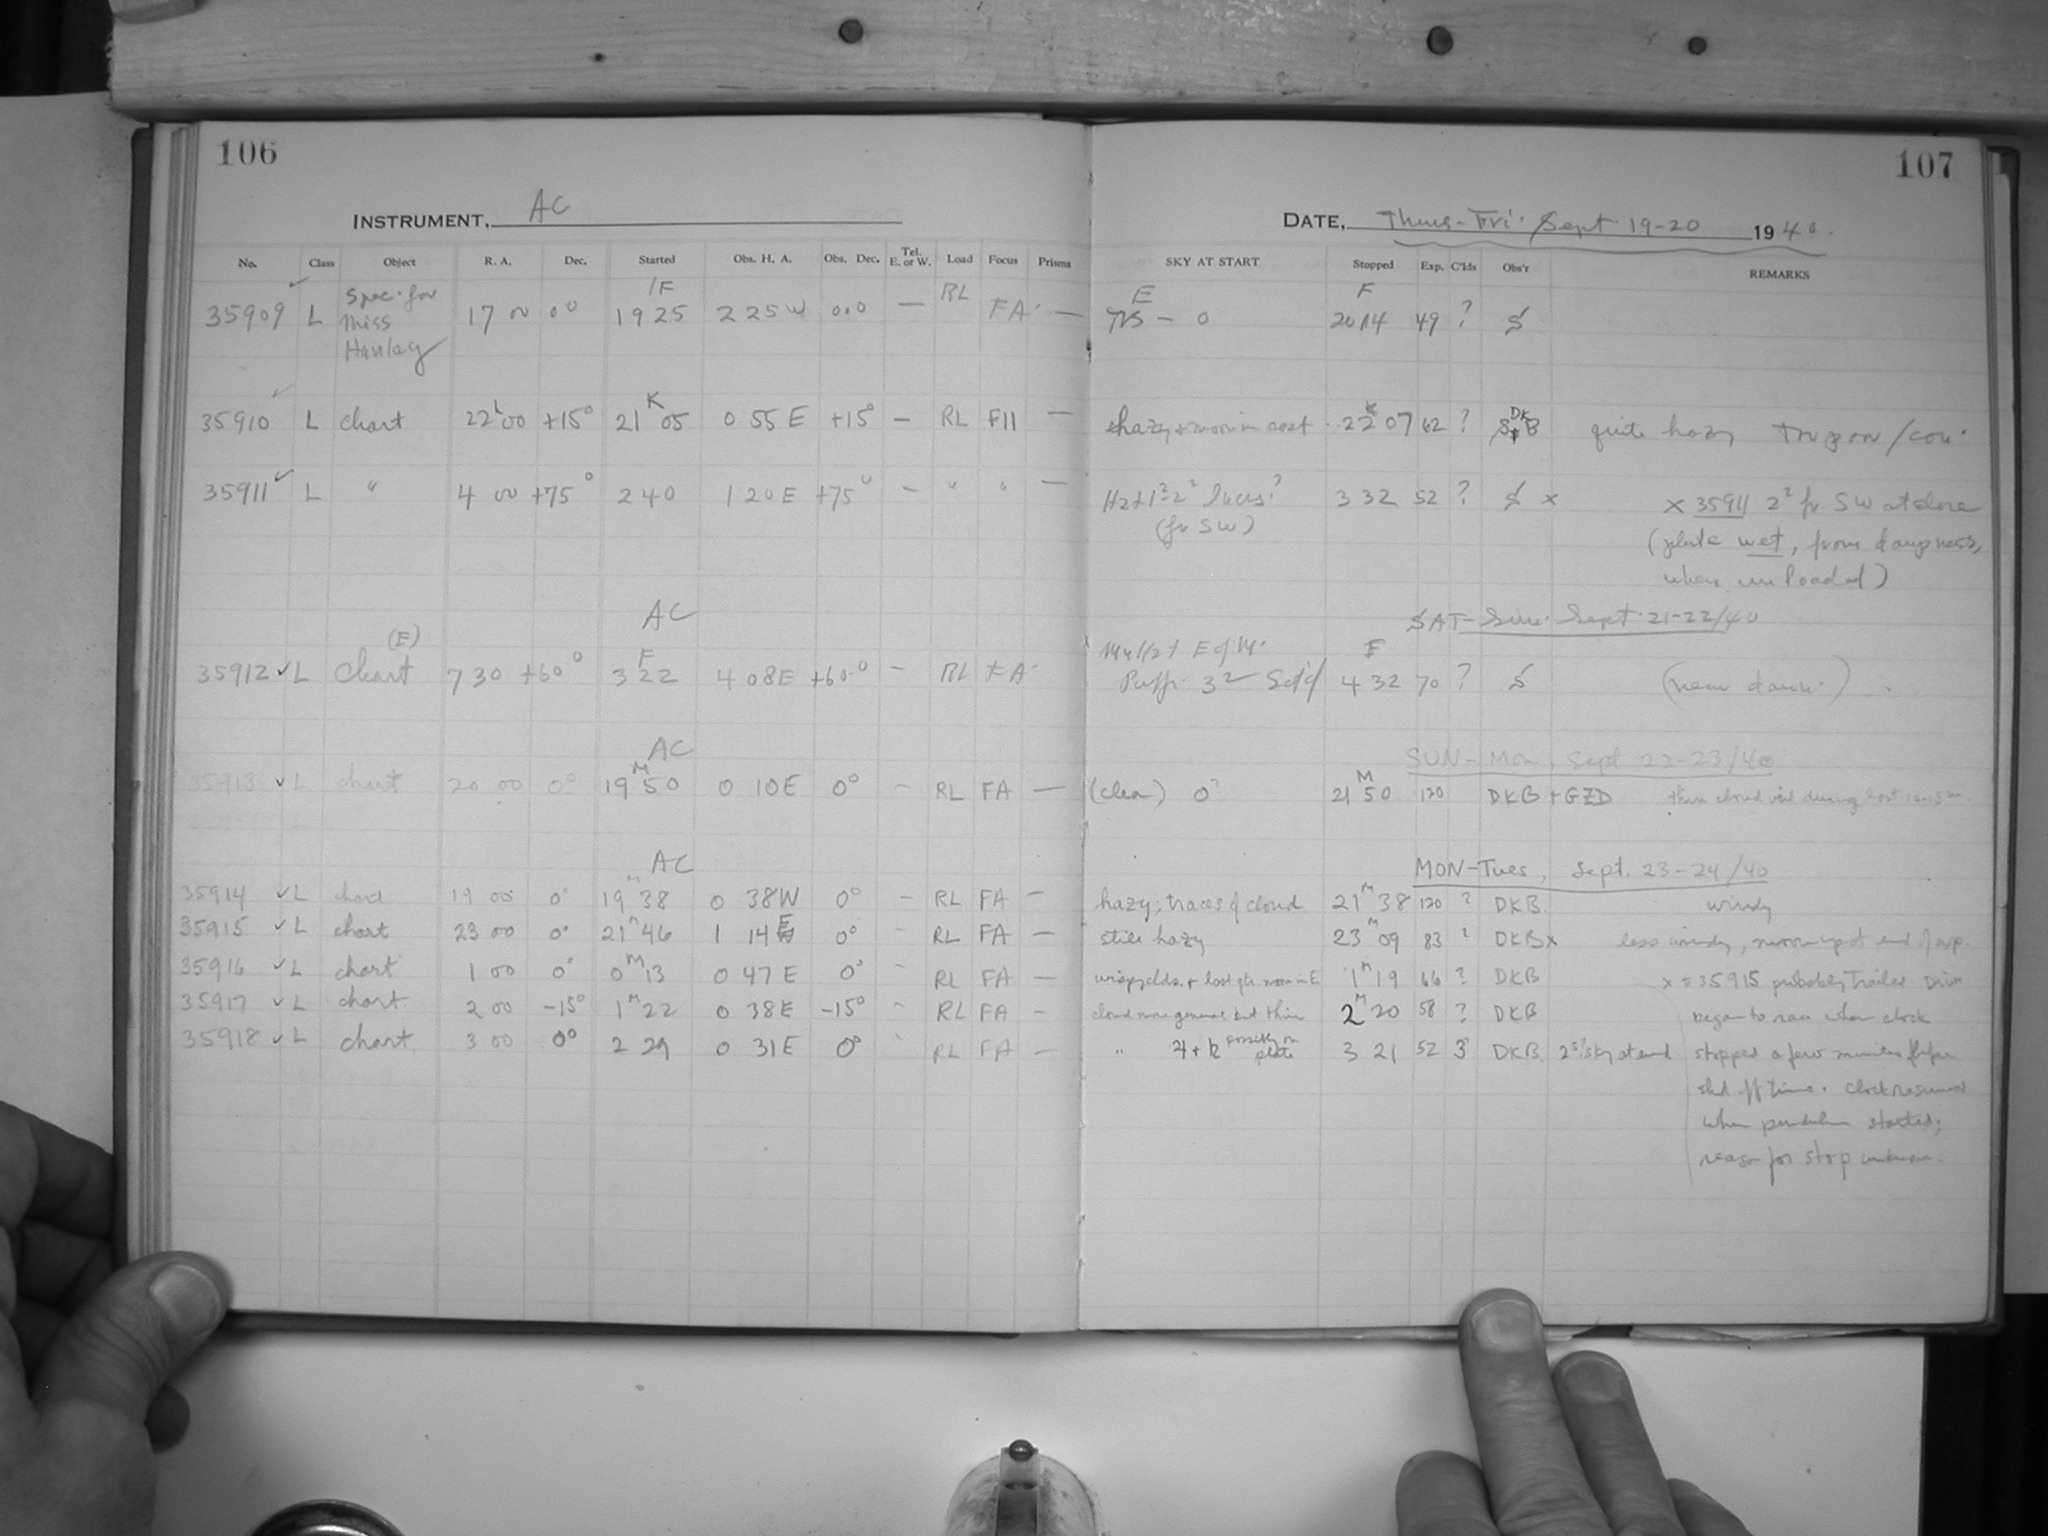 106
107
INSTRUMENT, AC
DATE, Thurs-Fri. Sept 19-20 1940.
No. Class Object R. A. Dec. Started Obs. H. A. Obs. Dec. Tel. E. or W. Load Focus Prisms SKY AT START Stopped Exp. C'lds Obs'r REMARKS
35909 L Spec. for Miss Hanley 17 00 00 F 19 25 2 25 W 0.0 — RL FA — E — 0 F 20 14 49 ? S
35910 L chart 22 00 +15° 21 K 05 0 55 E +15° — RL F11 — hazy + moon in east 22 K 07 62 ? DKB quite hazy
35911 L " 4 00 +75° 2 40 1 20 E +75° — " " — (fr SW) 3 32 52 ? S x x 35911 2² fr. SW at close
(plate wet, from dampness,
when unloaded)
AC SAT-Sun. Sept. 21-22/40
35912 L (E) Chart 7 30 +60° F 3 22 4 08 E +60° — RL FA E of M. F 4 32 70 ? S (near dawn.)
AC SUN-Mon. Sept 22-23/40
35913 L chart 20 00 0° 19 M 50 0 10 E 0° — RL FA — (clear) 0? 21 M 50 120 DKB + GZD thin cloud during last 10-15 m.
AC MON-Tues, Sept. 23-24/40
35914 L chart 19 00 0° 19 M 38 0 38 W 0° — RL FA — hazy; traces of cloud 21 M 38 120 ? DKB. windy
35915 L chart 23 00 0° 21 M 46 1 14 E 0° — RL FA — still hazy 23 M 09 83 ? DKB x less windy, moon up at end of exp.
35916 L chart 1 00 0° 0 M 13 0 47 E 0° — RL FA — wispy clds. + last qtr. moon in E 1 M 19 66 ? DKB x = 35915 probably trailed Drive
35917 L chart 2 00 -15° 1 M 22 0 38 E -15° — RL FA — cloud more general but thin 2 M 20 58 ? DKB began to race when clock
35918 L chart 3 00 0° 2 29 0 31 E 0° RL FA — " 24 + h possibly on plate 3 21 52 3 DKB. sky at end stopped a few minutes before
shut off time. Clock resumed
when pendulum started;
reason for stop unknown.